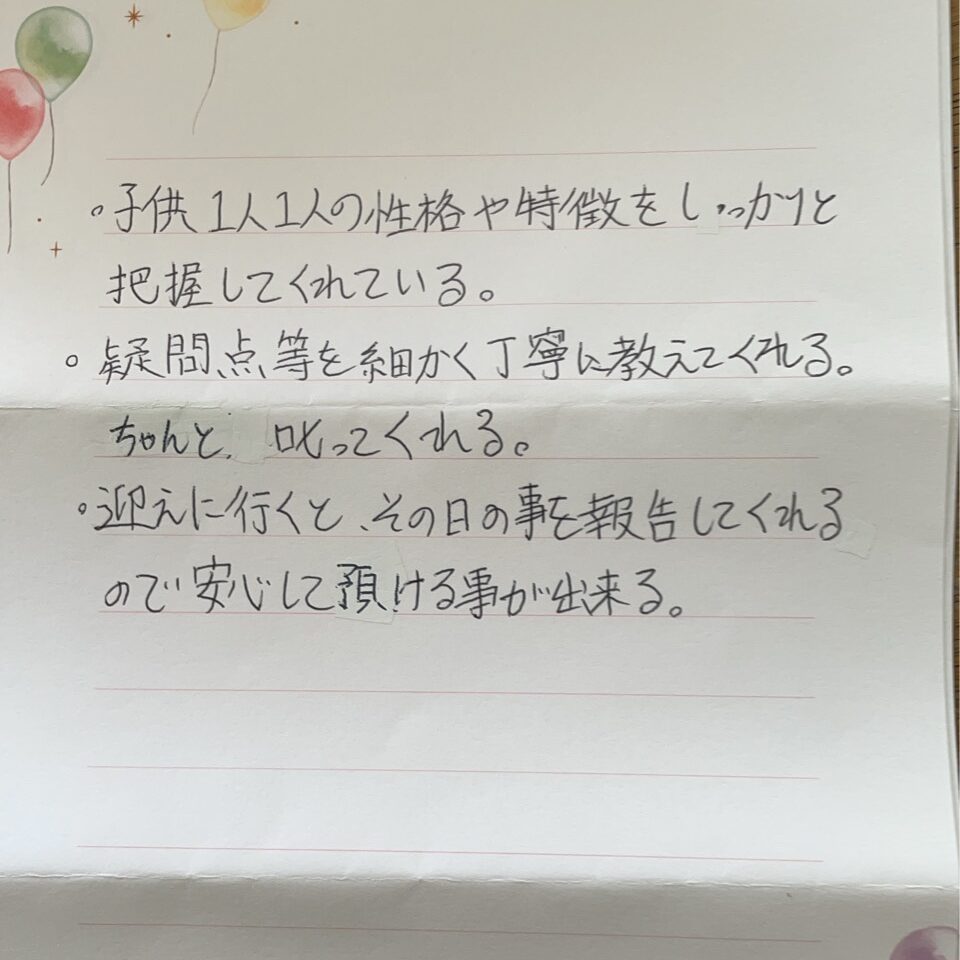 。子供1人1人の性格や特徴をしっかりと
把握してくれている。
。疑問点等を細かく丁寧に教えてくれる。
ちゃんと、叱ってくれる。
。迎えに行くと、その日の事を報告してくれる
ので安心して預ける事が出来る。